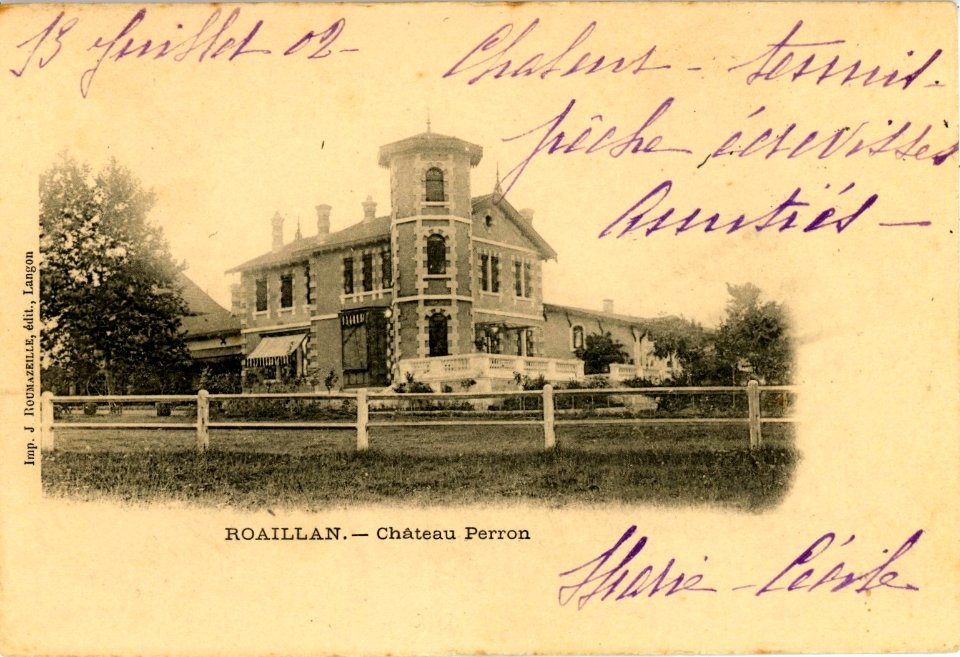 13 Juillet 02 -
Chaleur - tennis -
pêche écrevisses
Amitiés -
Imp. J ROUMAZEILLE, édit., Langon
ROAILLAN. — Château Perron
Marie - Cécile